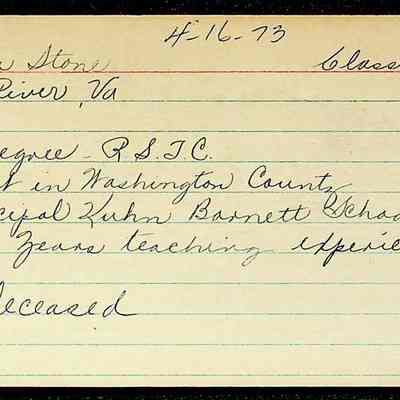 4-16-73
Stone Class
River, Va
egree - R.S.T.C.
t in Washington County
cipal Kuhn Barnett Schoo
Years teaching experie
eceased